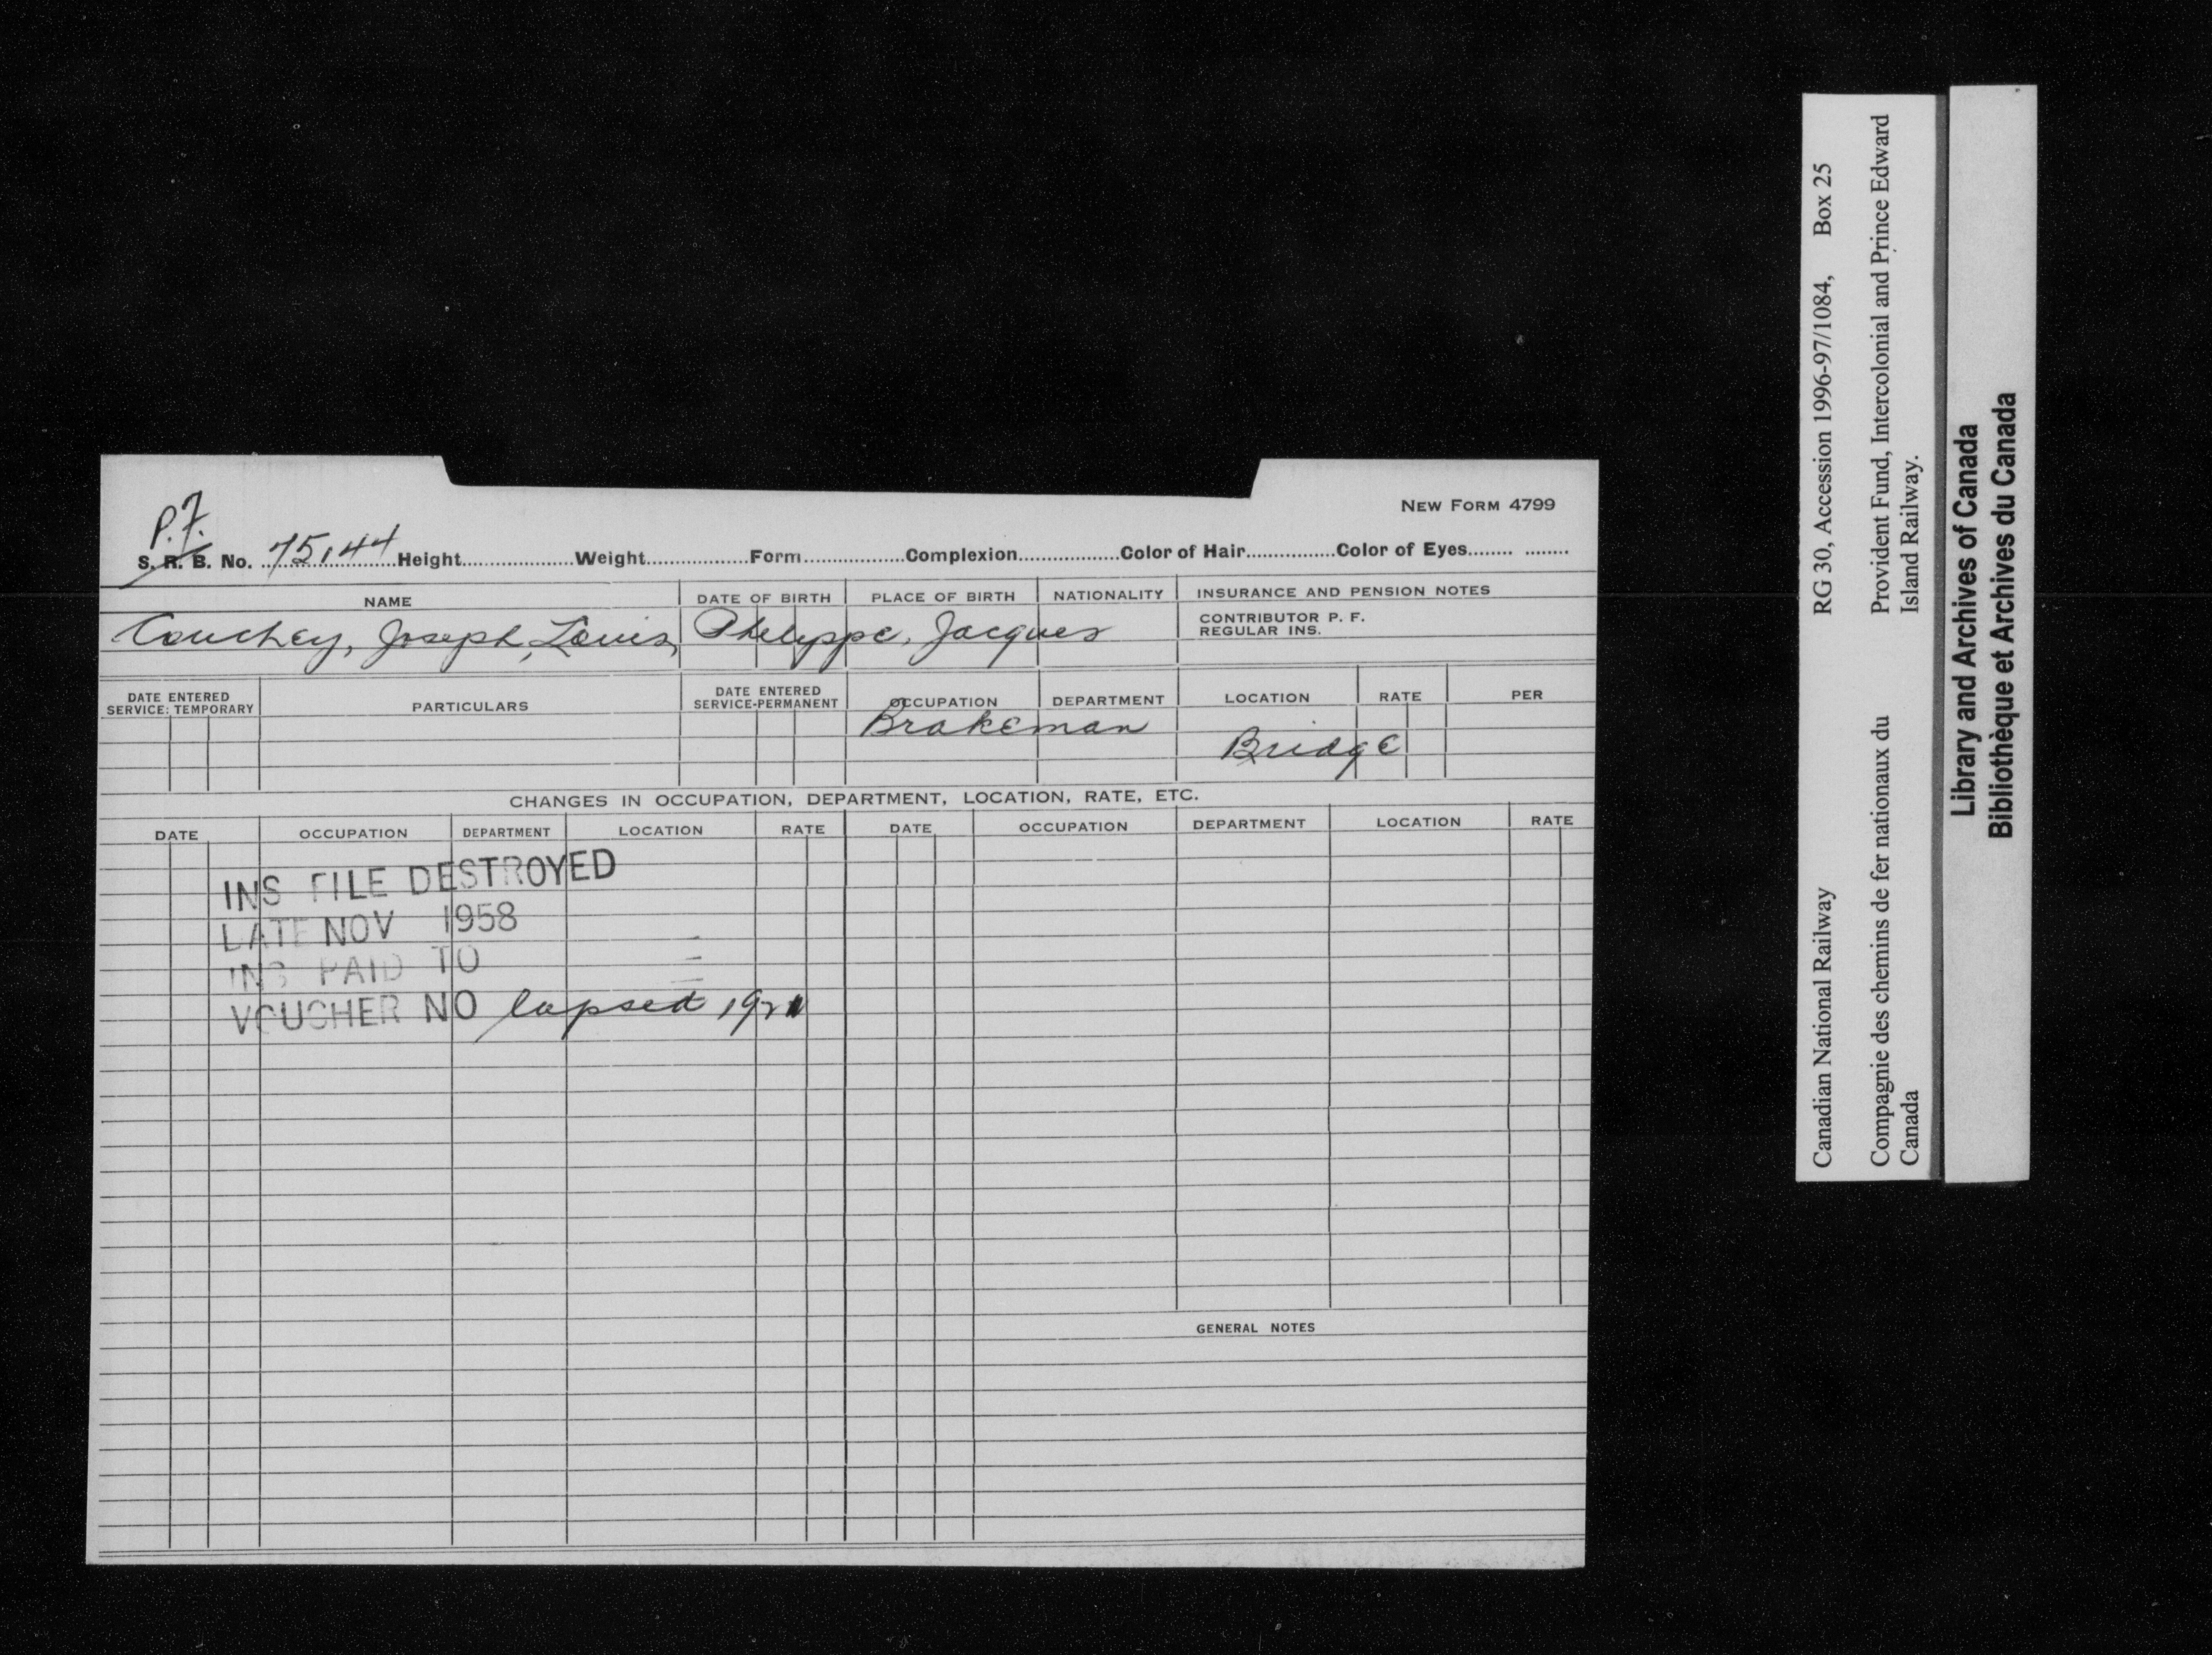 NEW FORM 4799
P.F.
S. R. B. No. 75,44 Height Weight Form Complexion Color of Hair Color of Eyes
NAME DATE OF BIRTH PLACE OF BIRTH NATIONALITY INSURANCE AND PENSION NOTES
Couchey, Joseph, Louis, Phelyppe, Jacques
CONTRIBUTOR P. F.
REGULAR INS.
DATE ENTERED SERVICE: TEMPORARY PARTICULARS DATE ENTERED SERVICE-PERMANENT OCCUPATION DEPARTMENT LOCATION RATE PER
Brakeman
Bridge
CHANGES IN OCCUPATION, DEPARTMENT, LOCATION, RATE, ETC.
DATE OCCUPATION DEPARTMENT LOCATION RATE DATE OCCUPATION DEPARTMENT LOCATION RATE
INS FILE DESTROYED
LATE NOV 1958
INS PAID TO
VOUCHER NO lapsed
GENERAL NOTES
Canadian National Railway RG 30, Accession 1996-97/1084, Box 25
Compagnie des chemins de fer nationaux du Provident Fund, Intercolonial and Prince Edward
Canada Island Railway.
Library and Archives of Canada
Bibliothèque et Archives du Canada